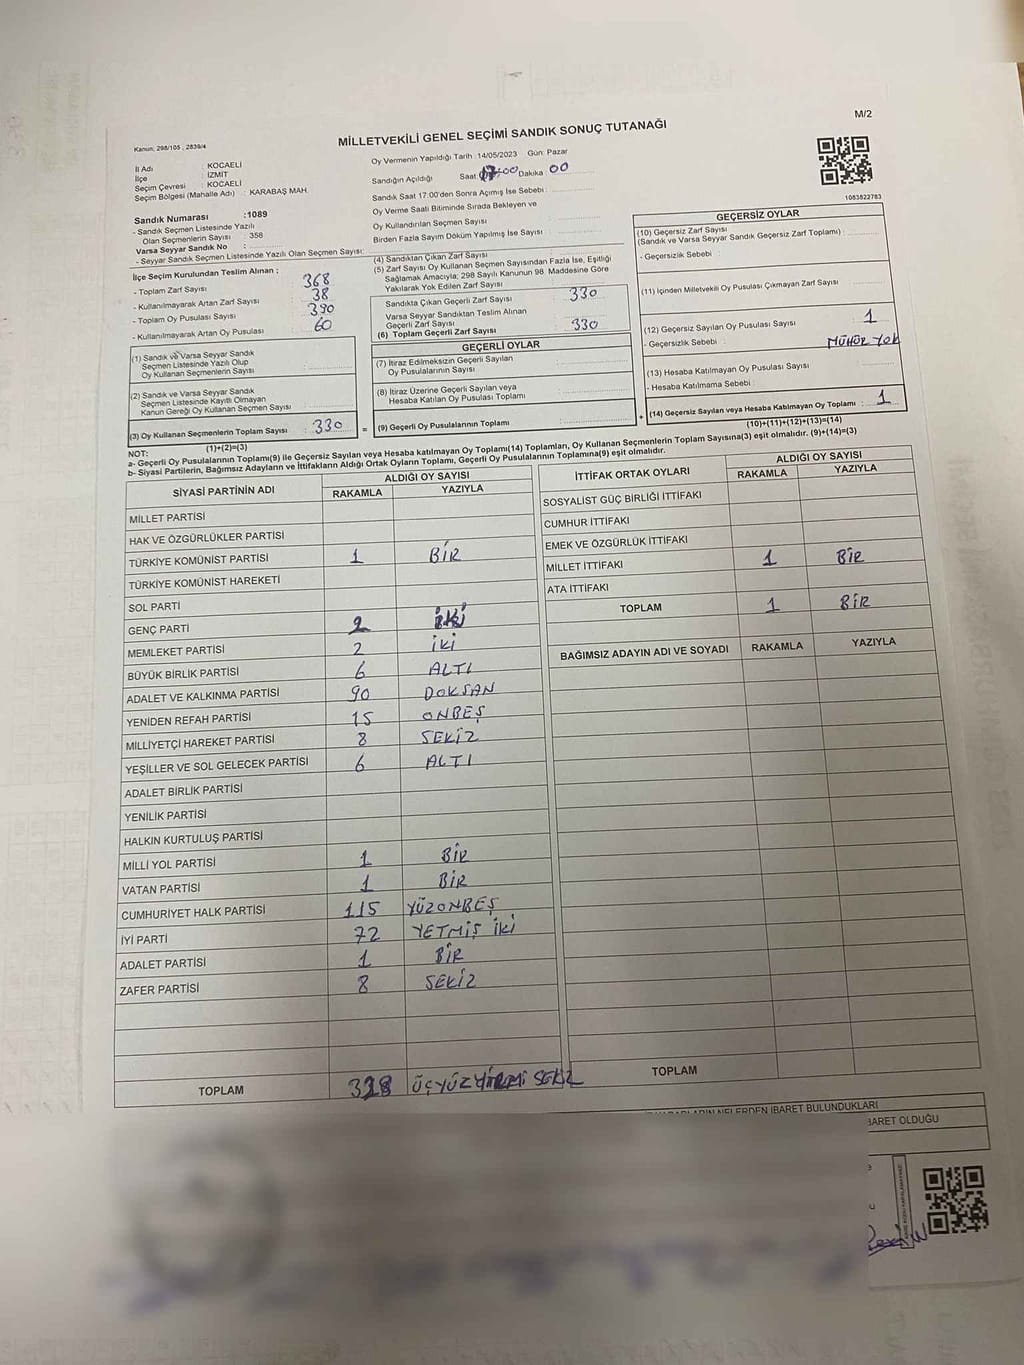 M/2
Kanun, 298/105 , 2839/4
MİLLETVEKİLİ GENEL SEÇİMİ SANDIK SONUÇ TUTANAĞI
İl Adı : KOCAELİ
İlçe : İZMİT
Seçim Çevresi : KOCAELİ
Seçim Bölgesi (Mahalle Adı) : KARABAŞ MAH.
Sandık Numarası :1089
- Sandık Seçmen Listesinde Yazılı
Olan Seçmenlerin Sayısı : 358
Varsa Seyyar Sandık No :
- Seyyar Sandık Seçmen Listesinde Yazılı Olan Seçmen Sayısı:
Oy Vermenin Yapıldığı Tarih :14/05/2023 Gün: Pazar
Sandığın Açıldığı Saat 17:00 Dakika 00
Sandık Saat 17:00'den Sonra Açımış İse Sebebi :
Oy Verme Saati Bitiminde Sırada Bekleyen ve
Oy Kullandırılan Seçmen Sayısı :
Birden Fazla Sayım Döküm Yapılmış İse Sayısı :
1083822783
İlçe Seçim Kurulundan Teslim Alınan ;
- Toplam Zarf Sayısı : 368
- Kullanılmayarak Artan Zarf Sayısı : 38
- Toplam Oy Pusulası Sayısı : 390
- Kullanılmayarak Artan Oy Pusulası : 60
(1) Sandık ve Varsa Seyyar Sandık
Seçmen Listesinde Yazılı Olup
Oy Kullanan Seçmenlerin Sayısı :
(2) Sandık ve Varsa Seyyar Sandık
Seçmen Listesinde Kayıtlı Olmayan
Kanun Gereği Oy Kullanan Seçmen Sayısı :
(3) Oy Kullanan Seçmenlerin Toplam Sayısı : 330
(1)+(2)=(3)
(4) Sandıktan Çıkan Zarf Sayısı :
(5) Zarf Sayısı Oy Kullanan Seçmen Sayısından Fazla İse, Eşitliği
Sağlamak Amacıyla; 298 Sayılı Kanunun 98. Maddesine Göre
Yakılarak Yok Edilen Zarf Sayısı :
Sandıkta Çıkan Geçerli Zarf Sayısı : 330
Varsa Seyyar Sandıktan Teslim Alınan
Geçerli Zarf Sayısı :
(6) Toplam Geçerli Zarf Sayısı : 330
GEÇERLİ OYLAR
(7) İtiraz Edilmeksizin Geçerli Sayılan
Oy Pusulalarının Sayısı :
(8) İtiraz Üzerine Geçerli Sayılan veya
Hesaba Katılan Oy Pusulası Toplamı :
= (9) Geçerli Oy Pusulalarının Toplamı :
GEÇERSİZ OYLAR
(10) Geçersiz Zarf Sayısı
(Sandık ve Varsa Seyyar Sandık Geçersiz Zarf Toplamı) :
- Geçersizlik Sebebi :
(11) İçinden Milletvekili Oy Pusulası Çıkmayan Zarf Sayısı
(12) Geçersiz Sayılan Oy Pusulası Sayısı : 1
- Geçersizlik Sebebi : MÜHÜR YOK
(13) Hesaba Katılmayan Oy Pusulası Sayısı :
- Hesaba Katılmama Sebebi :
+ (14) Geçersiz Sayılan veya Hesaba Katılmayan Oy Toplamı : 1
(10)+(11)+(12)+(13)=(14)
NOT:
a- Geçerli Oy Pusulalarının Toplamı(9) ile Geçersiz Sayılan veya Hesaba katılmayan Oy Toplamı(14) Toplamları, Oy Kullanan Seçmenlerin Toplam Sayısına(3) eşit olmalıdır. (9)+(14)=(3)
b- Siyasi Partilerin, Bağımsız Adayların ve İttifakların Aldığı Ortak Oyların Toplamı, Geçerli Oy Pusulalarının Toplamına(9) eşit olmalıdır.
SİYASİ PARTİNİN ADI ALDIĞI OY SAYISI
RAKAMLA YAZIYLA
MİLLET PARTİSİ
HAK VE ÖZGÜRLÜKLER PARTİSİ
TÜRKİYE KOMÜNİST PARTİSİ 1 BİR
TÜRKİYE KOMÜNİST HAREKETİ
SOL PARTİ
GENÇ PARTİ 2 İKİ
MEMLEKET PARTİSİ 2 İKİ
BÜYÜK BİRLİK PARTİSİ 6 ALTI
ADALET VE KALKINMA PARTİSİ 90 DOKSAN
YENİDEN REFAH PARTİSİ 15 ONBEŞ
MİLLİYETÇİ HAREKET PARTİSİ 8 SEKİZ
YEŞİLLER VE SOL GELECEK PARTİSİ 6 ALTI
ADALET BİRLİK PARTİSİ
YENİLİK PARTİSİ
HALKIN KURTULUŞ PARTİSİ
MİLLİ YOL PARTİSİ 1 BİR
VATAN PARTİSİ 1 BİR
CUMHURİYET HALK PARTİSİ 115 YÜZONBEŞ
İYİ PARTİ 72 YETMİŞ İKİ
ADALET PARTİSİ 1 BİR
ZAFER PARTİSİ 8 SEKİZ
TOPLAM 328 ÜÇYÜZ YİRMİ SEKİZ
İTTİFAK ORTAK OYLARI ALDIĞI OY SAYISI
RAKAMLA YAZIYLA
SOSYALİST GÜÇ BİRLİĞİ İTTİFAKI
CUMHUR İTTİFAKI
EMEK VE ÖZGÜRLÜK İTTİFAKI
MİLLET İTTİFAKI 1 BİR
ATA İTTİFAKI
TOPLAM 1 BİR
BAĞIMSIZ ADAYIN ADI VE SOYADI RAKAMLA YAZIYLA
TOPLAM
NELERDEN İBARET BULUNDUKLARI
OLDUĞU